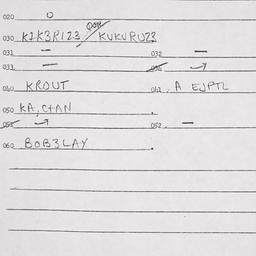 020 0
030 K1K3R123 / KUKURU23
031 – 032 –
033 –
040 KROUT 041 A EJPTL
050 KA, C+AN
052 –
060 BOB3LAY